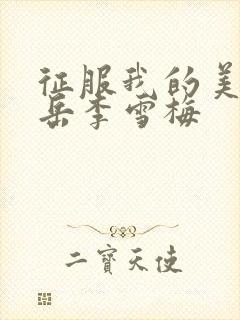 征服我的美
岳李雪梅
二寶天使